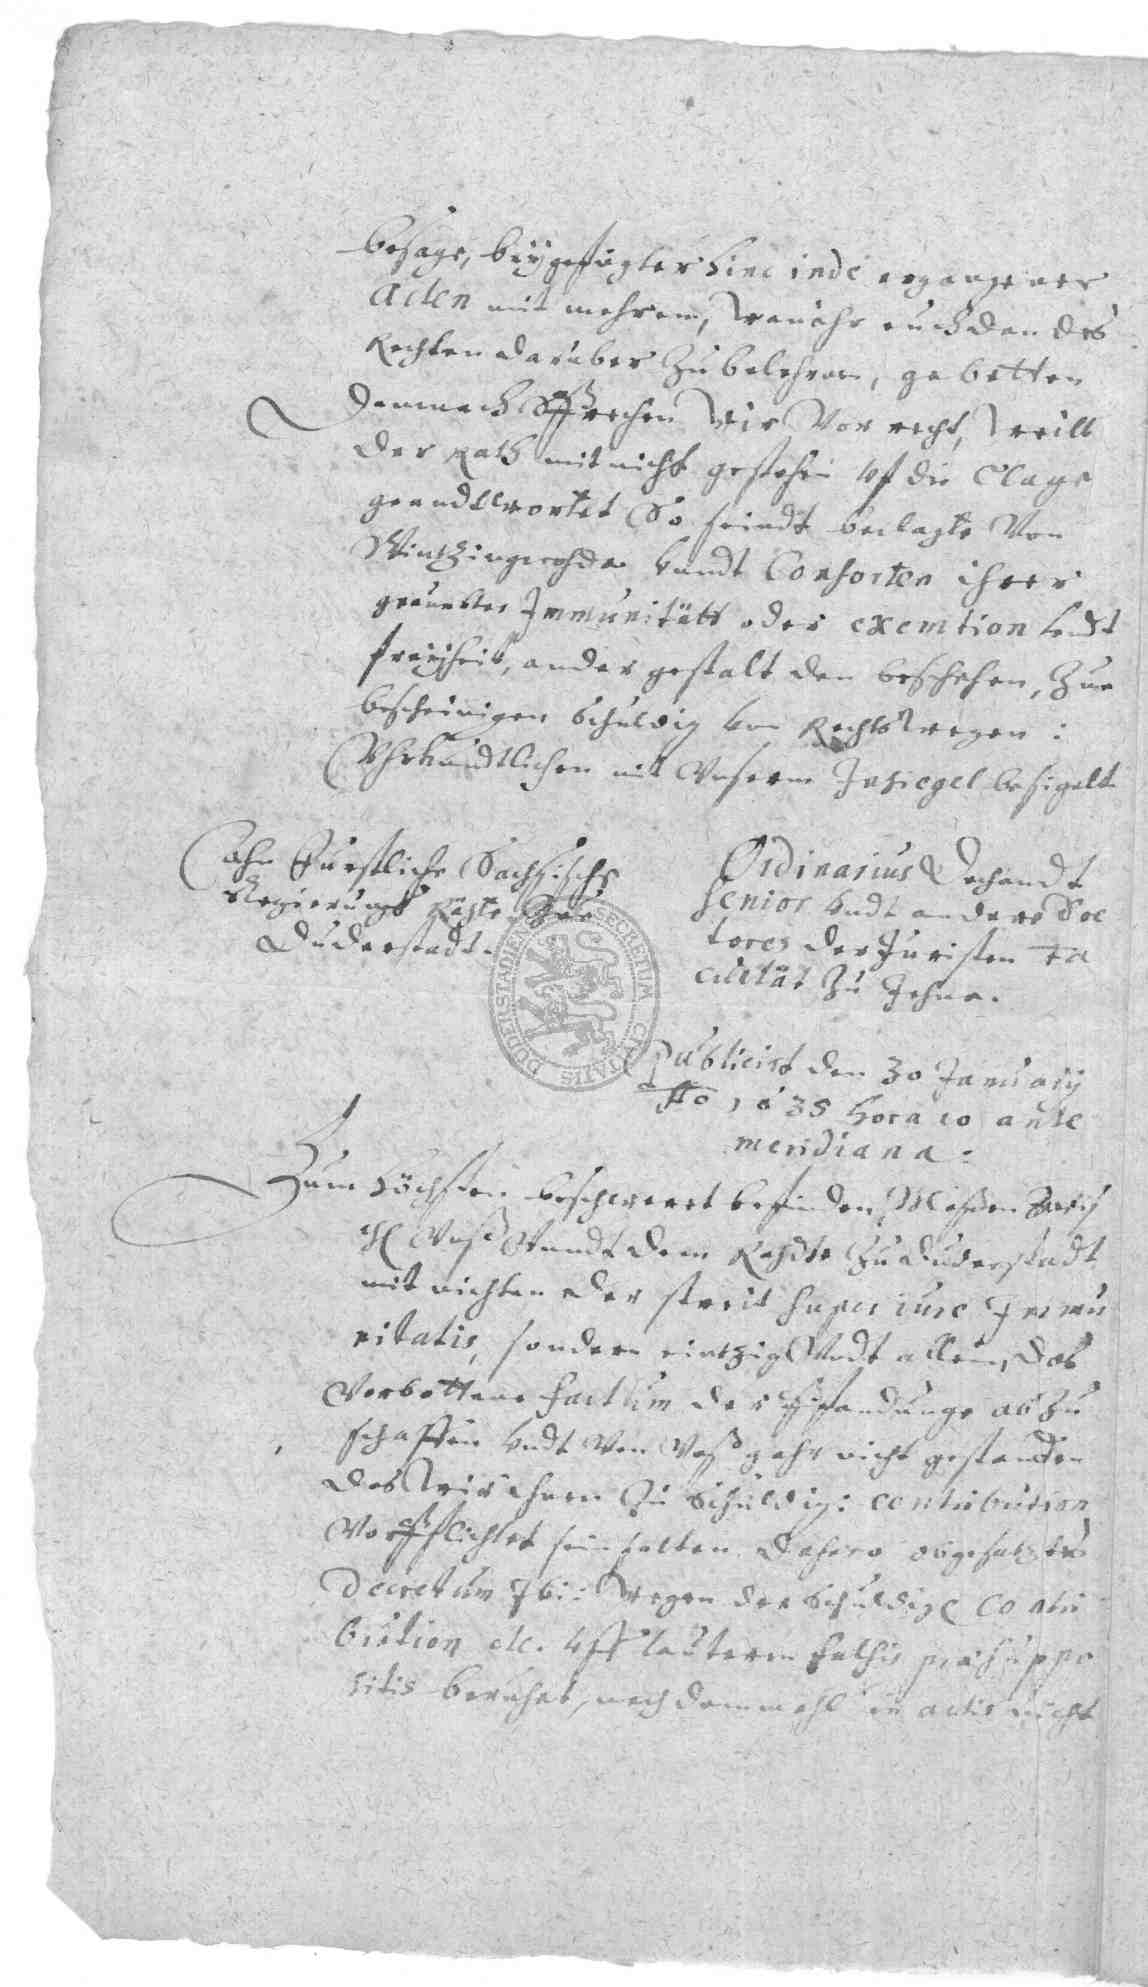 besage, beygefügter hinc inde ergangener
Acten mit mehrem, vnd euch den des
Rechten darüber zu belehren, gebetten
Demnach Sprechen Wir Vor recht, Weill
der Rath mit nicht gestehen vf die Clage
geandtwortet So seindt beclagte Von
Wintzingeroda vundt Consorten ihrer
Immunitätt oder exemtion vndt
freyheit, ander gestalt den beschehen, Zue
bescheinigen Schuldig von Rechts wegen:
Vhrkundtlichen mit Vnserm Insiegel besigelt
Ahn Furstliche Sächsische
Regierungs Rähte Zue
Duderstadt.
Ordinarius Dechandt
Senior vndt andere Doc
tores der Juristen Fa
cultät Zu Jehna.
SECRETUM CIVITATIS DUDERSTADENSIS
Publicirt den 30 January
Ao 1635 hora 10 ante
meridiana.
Zum höchsten beschweret befinden, Maßen Zwisch
Vnß Vundt dem Rahdte Zu Duderstadt
mit nichten der streit super iure Immu
nitatis, sondern eintzig Vndt allein, das
Verbottene factum der Pfandunge abzu
schaffen vndt Von Vnß gahr nicht gestanden
das Wir ihnen Zu Schuldig: contribution
Verpflichtet sein solten dahero obgesatztes
Decretum ibi: Wegen der Schuldige Contri
bution etc. vff lauterm falsis præsuppo
sitis beruhet, nachdemmahl in actis nicht